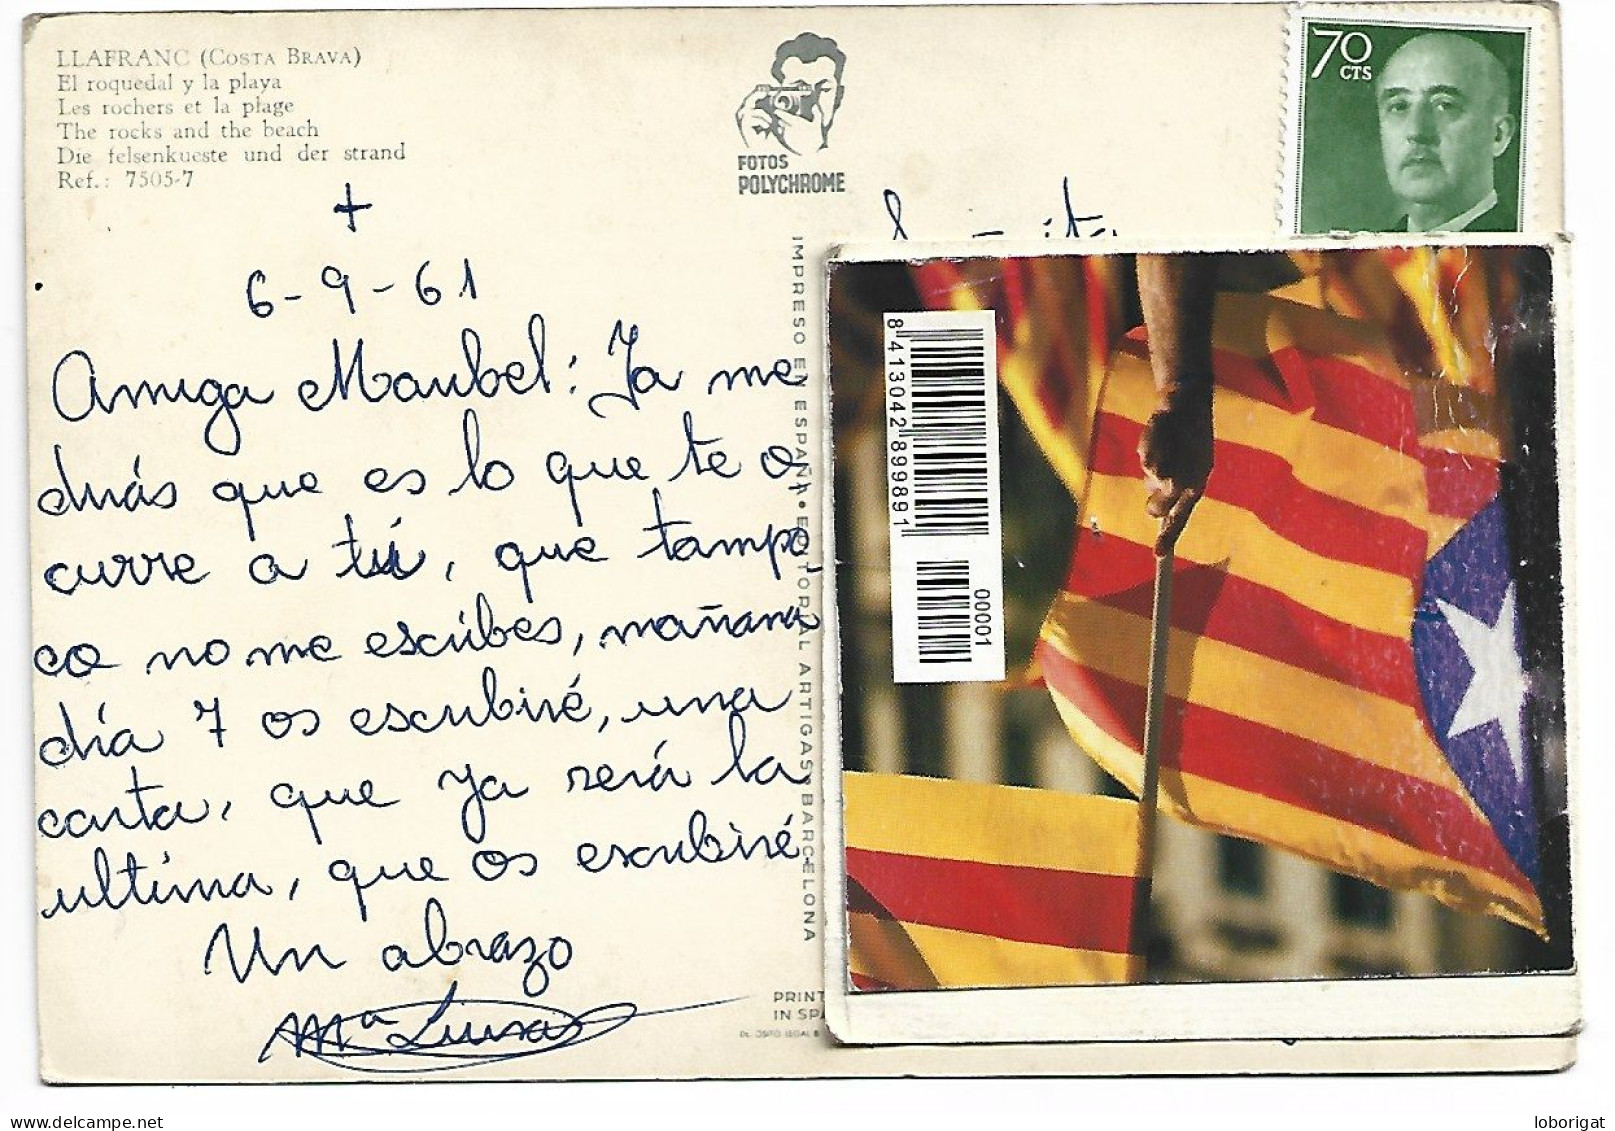 LLAFRANC (COSTA BRAVA)
El roquedal y la playa
Les rochers et la plage
The rocks and the beach
Die felsenkueste und der strand
Ref.: 7505-7
+
6-9-61
Amiga Maribel: Ya me
dirás que es lo que te o-
curre a tú, que tampo-
co no me escribes, mañana
día 7 os escribiré, una
carta, que ya será la
ultima, que os escribiré.
Un abrazo
Mª Luisa
FOTOS
POLYCHROME
IMPRESO EN ESPAÑA • EDITORIAL ARTIGAS, BARCELONA
PRINT
IN SPA
70
CTS
8 413042 899891
00001
loborigat